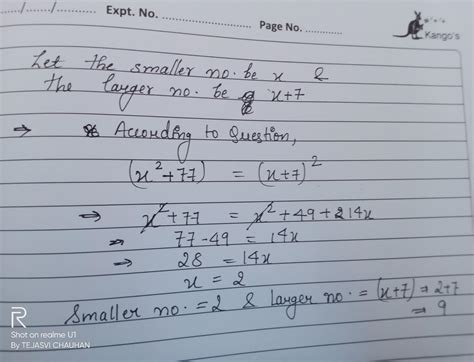 ...../......../........ Expt. No. ........................
Page No. ..................
Kangο's
Let the smaller no. be x &
the larger no. be x+7
⇒ According to Question,
(x²+77) = (x+7)²
⇒ x²+77 = x²+49+14x
⇒ 77-49 = 14x
⇒ 28 = 14x
x = 2
Smaller no. = 2 & larger no. = (x+7) ⇒ 2+7
⇒ 9
R
Shot on realme U1
By TEJASVI CHAUHAN